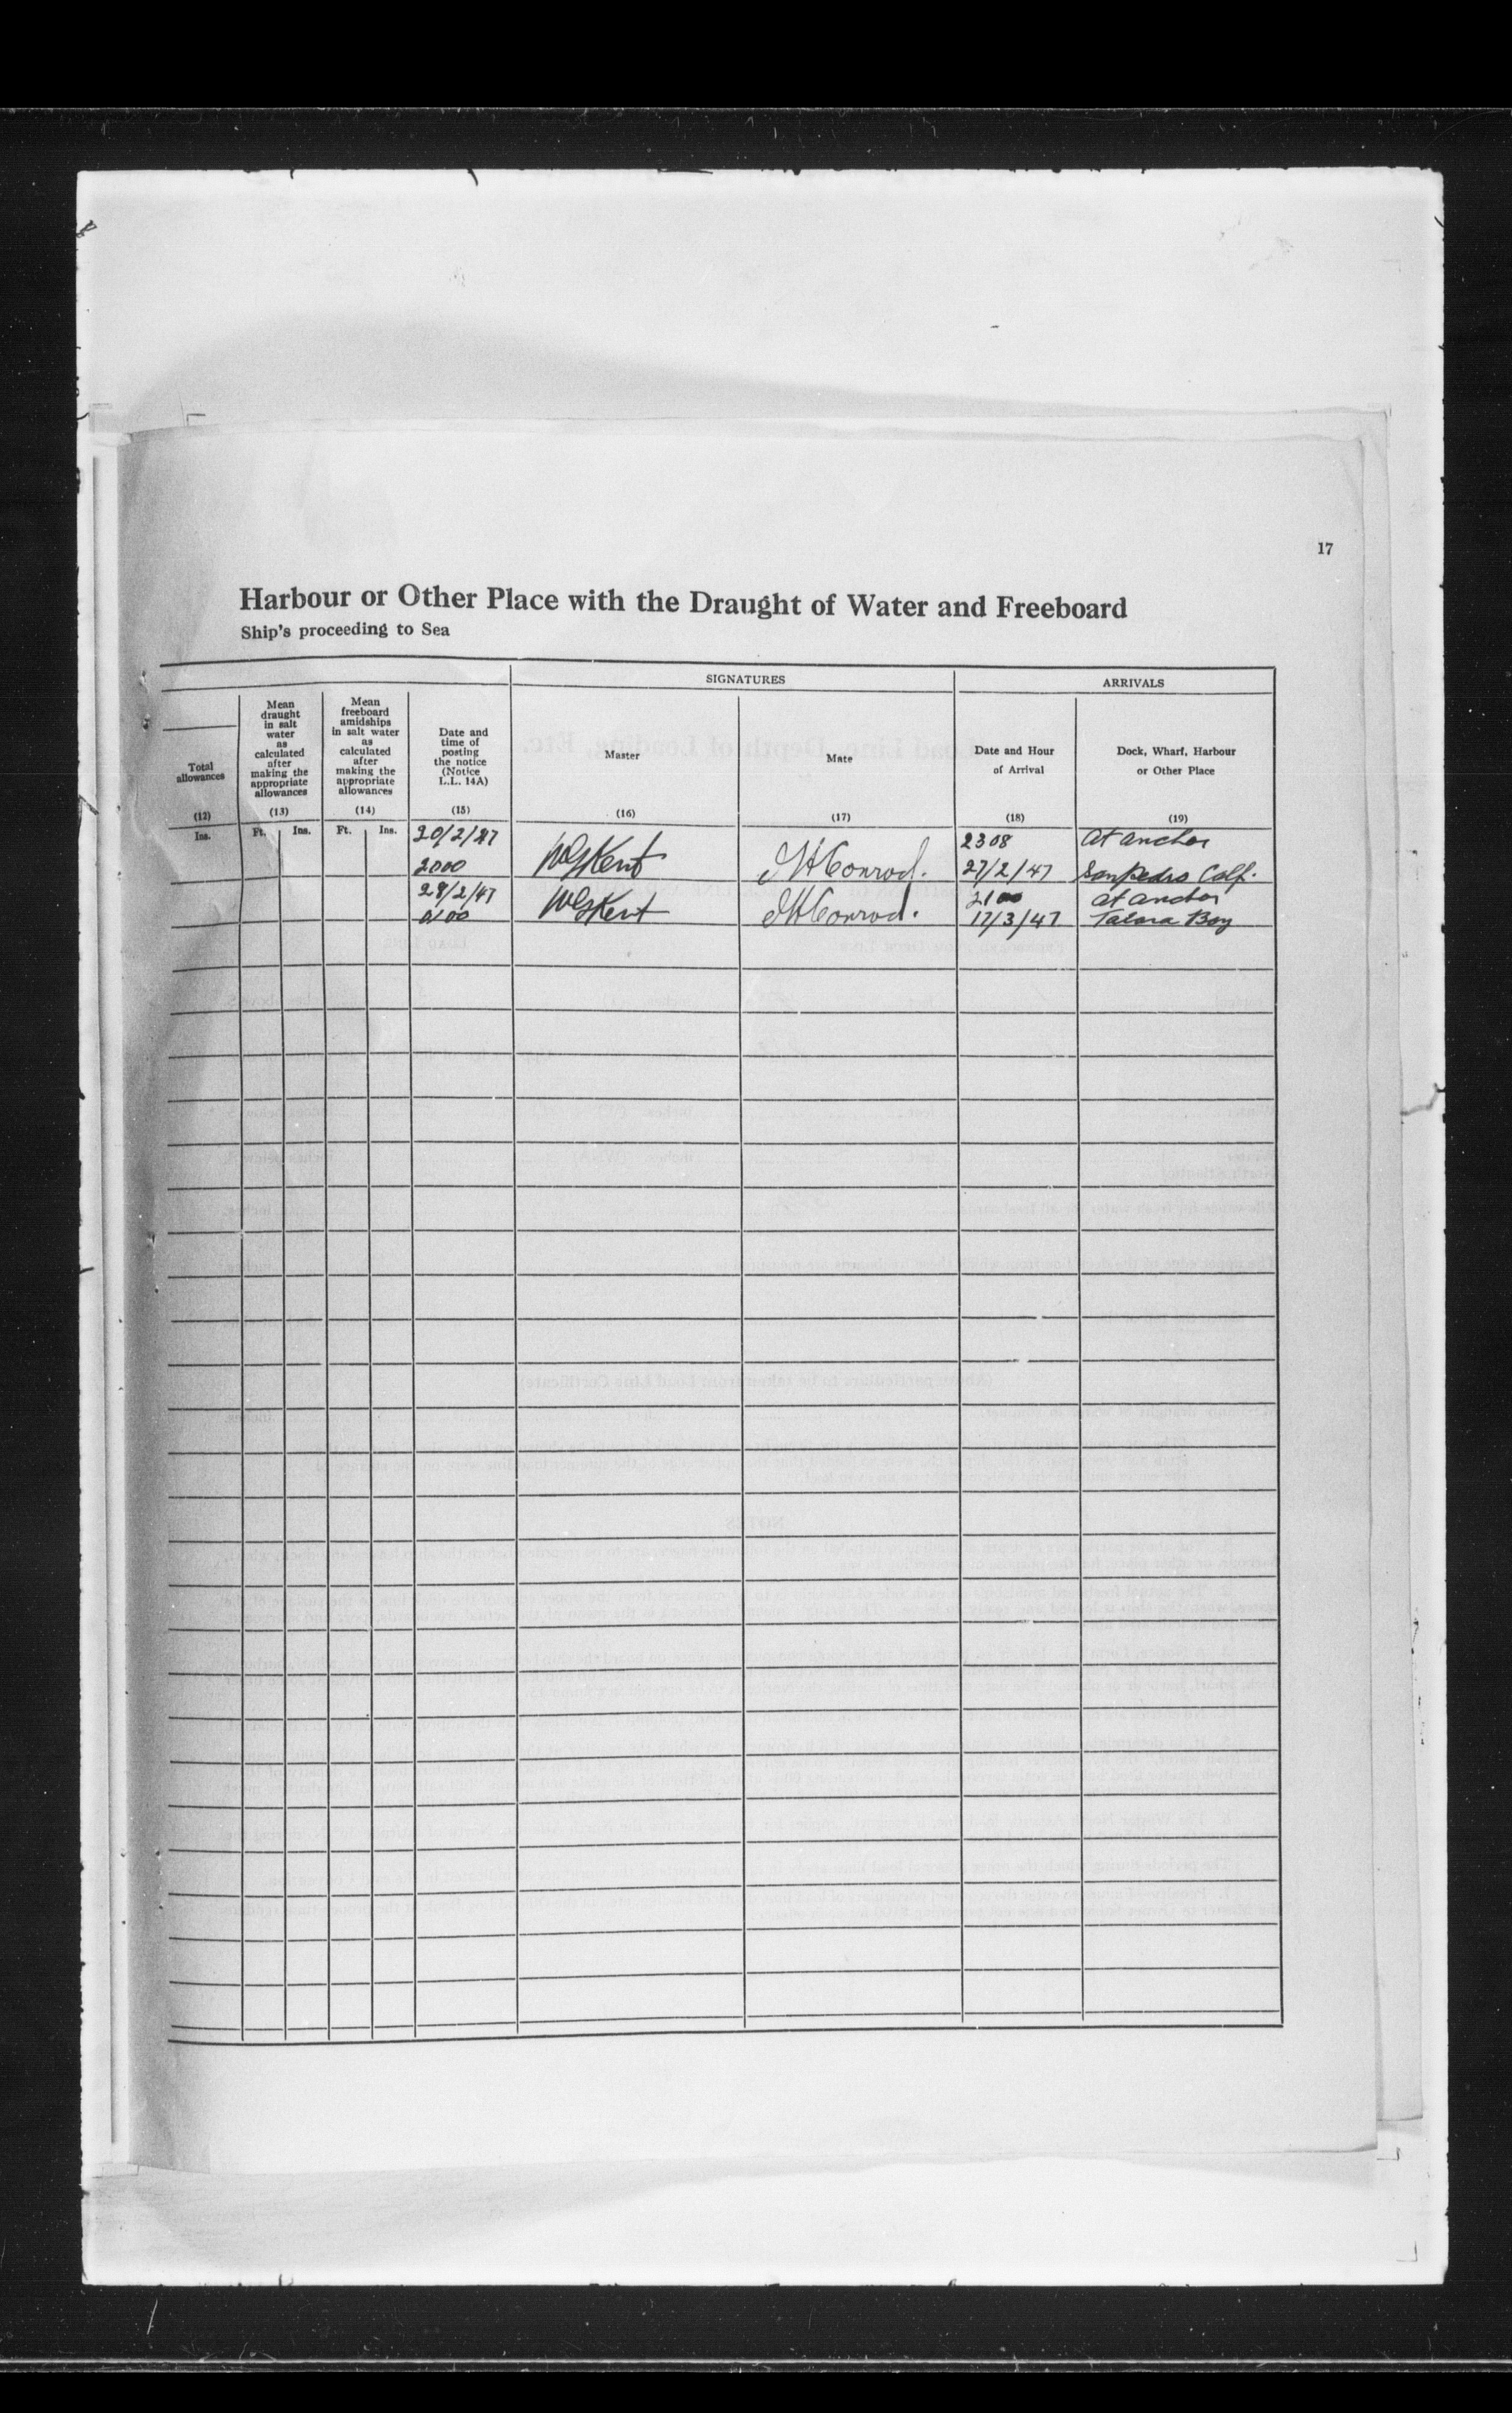 17
Harbour or Other Place with the Draught of Water and Freeboard
Ship's proceeding to Sea
SIGNATURES
ARRIVALS
Total
allowances
(12)
Ins.
Mean
draught
in salt
water
as
calculated
after
making the
appropriate
allowances
(13)
Ft. Ins.
Mean
freeboard
amidships
in salt water
as
calculated
after
making the
appropriate
allowances
(14)
Ft. Ins.
Date and
time of
posting
the notice
(Notice
L.L. 14A)
(15)
Master
(16)
Mate
(17)
Date and Hour
of Arrival
(18)
Dock, Wharf, Harbour
or Other Place
(19)
20/2/47 2308 at anchor
2000 WGKent JHConrod. 27/2/47 San Pedro Calf.
28/2/47 2100 at anchor
WGKent JHConrod. 17/3/47 Talara Bay